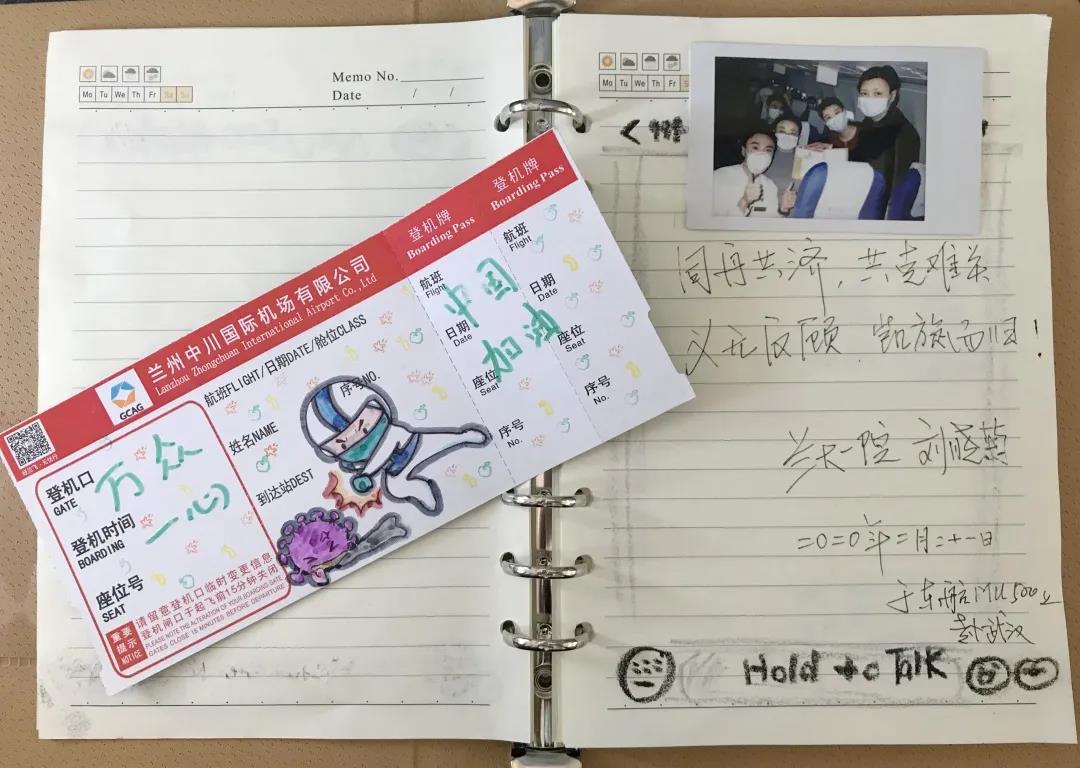 Memo No.
Date / /
Mo Tu We Th Fr Sa Su
兰州中川国际机场有限公司
Lanzhou Zhongchuan International Airport Co.,Ltd
GCAG
登机牌
Boarding Pass
登机牌
Boarding Pass
航班FLIGHT/日期DATE/舱位CLASS
序号NO.
姓名NAME
到达站DEST
登机口
GATE
登机时间
BOARDING
座位号
SEAT
万众
一心
重要
提示
NOTICE
请留意登机口临时变更信息
登机闸口于起飞前15分钟关闭
PLEASE NOTE THE ALTERATION OF YOUR BOARDING GATE
GATES CLOSE 15 MINUTES BEFORE DEPARTURE
航班
Flight
日期
Date
座位
Seat
序号
No.
中国
加油
航班
Flight
日期
Date
座位
Seat
序号
No.
Mo Tu We Th Fr
同舟共济,共克难关
义无反顾,凯旋而归!
兰大一院 刘晓菊
二〇二〇年二月二十一日
于东航MU5002
赴武汉
Hold to Talk